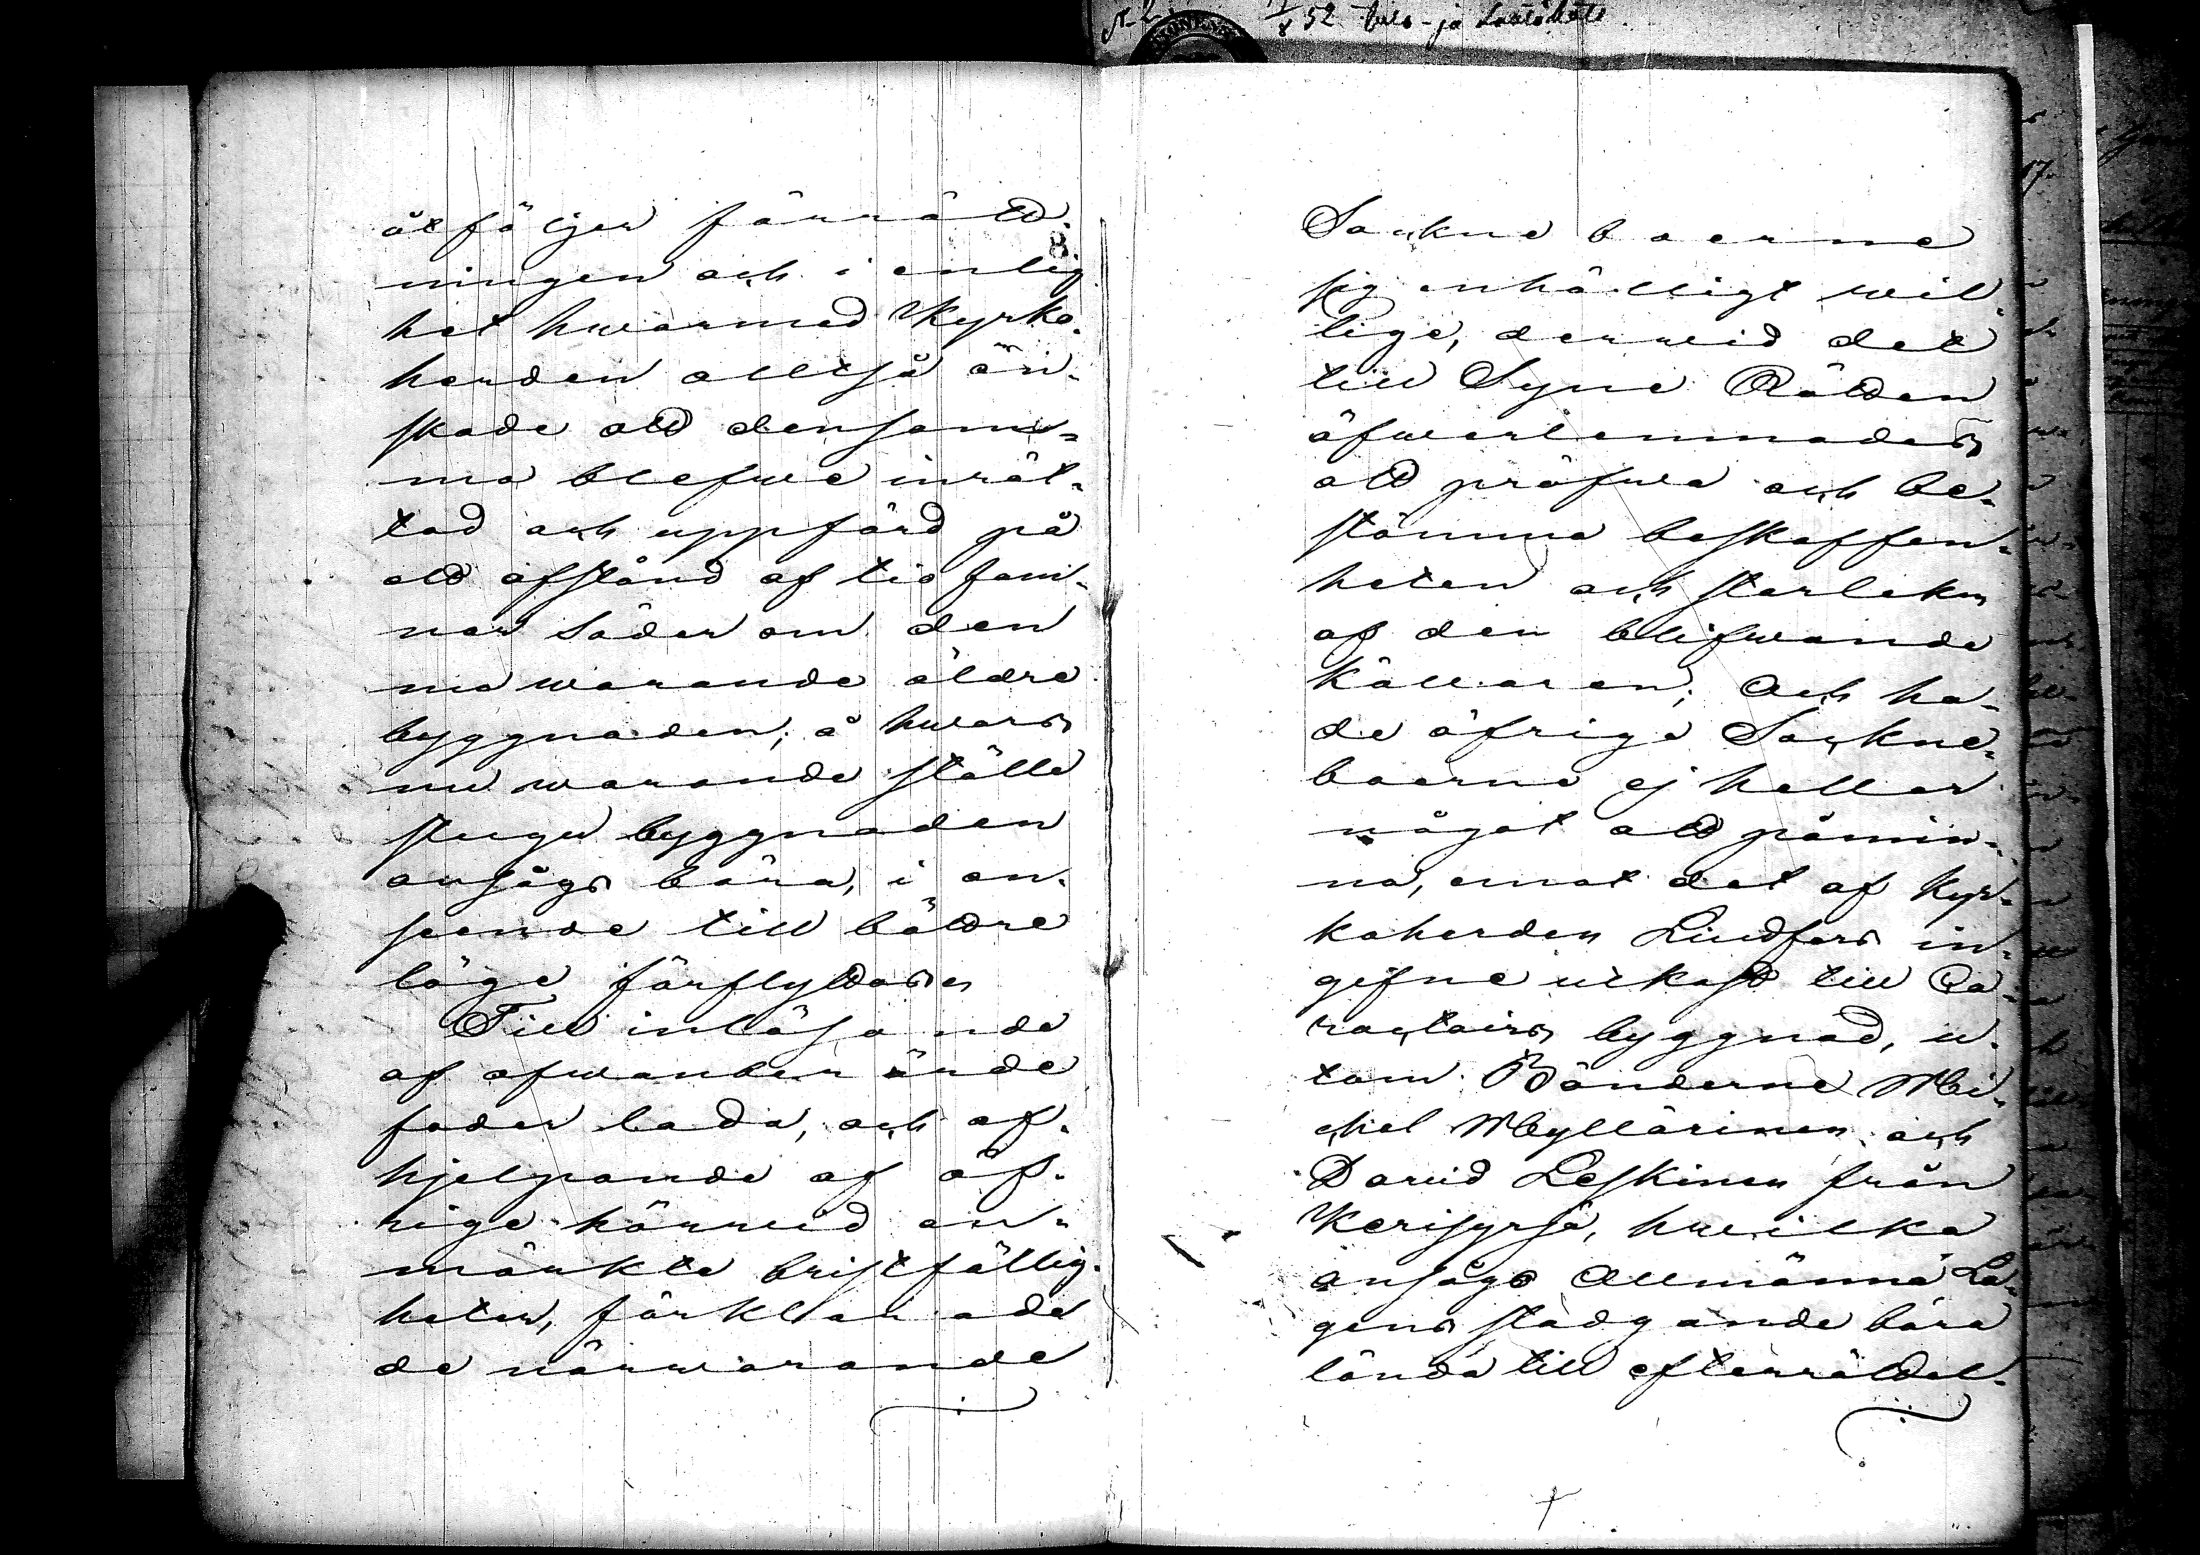 N. 2.
52
8.
åtföljer förrätt-
ningen och i enlig
het hwarmed Kyrko-
herden alltså ön-
skade att densam-
ma blefwe inrät-
tad och uppförd på
ett afstånd af tio fam-
nar Söder om den
nu warande äldre
byggnaden; å hwars
nu warande ställe
stugu byggnaden
ansågs böra, i an-
seende till bättre
läge förflyttas.
Till inlösande
af ofwanberörde
foder lada, och af-
hjelpande af öf-
rige härweid an-
märkte bristfällig-
heter, förklarade
de närwarande
Sockne boerne
sig enhälligt wil-
lige, derweid det
till Syne Rätten
öfwerlemnades
att pröfwa och be-
stämma beskaffen-
heten och storleken
af den blifwande
källaren; Och ha-
de öfrige Sockne-
boerne ej heller
något att påmin-
na, emot det af Kyr-
koherden Lindfors in-
gifne utkast till Ca-
racters byggnad, u-
tom Bönderne Mi-
chel Myllärinen och
David Leskinen från
Kerisyrjä, hwilka
ansågo Allmänna La-
gens stadgande böra
lända till efterrättel-